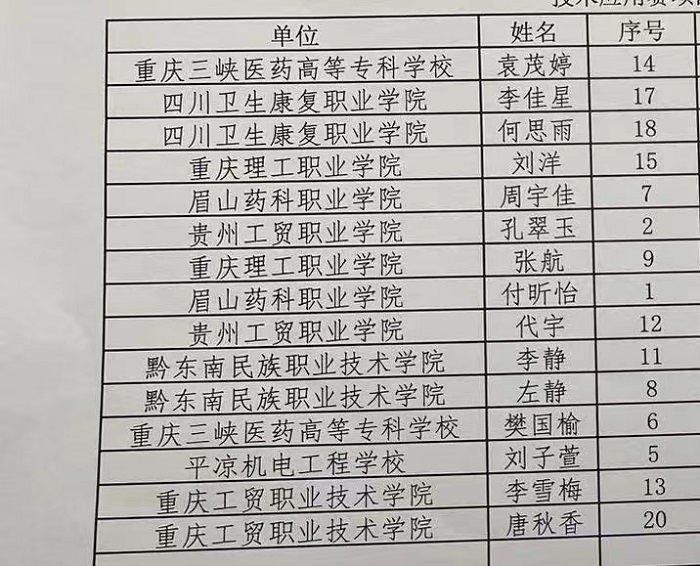 单位 姓名 序号
重庆三峡医药高等专科学校 袁茂婷 14
四川卫生康复职业学院 李佳星 17
四川卫生康复职业学院 何思雨 18
重庆理工职业学院 刘洋 15
眉山药科职业学院 周宇佳 7
贵州工贸职业学院 孔翠玉 2
重庆理工职业学院 张航 9
眉山药科职业学院 付昕怡 1
贵州工贸职业学院 代宇 12
黔东南民族职业技术学院 李静 11
黔东南民族职业技术学院 左静 8
重庆三峡医药高等专科学校 樊国榆 6
平凉机电工程学校 刘子萱 5
重庆工贸职业技术学院 李雪梅 13
重庆工贸职业技术学院 唐秋香 20